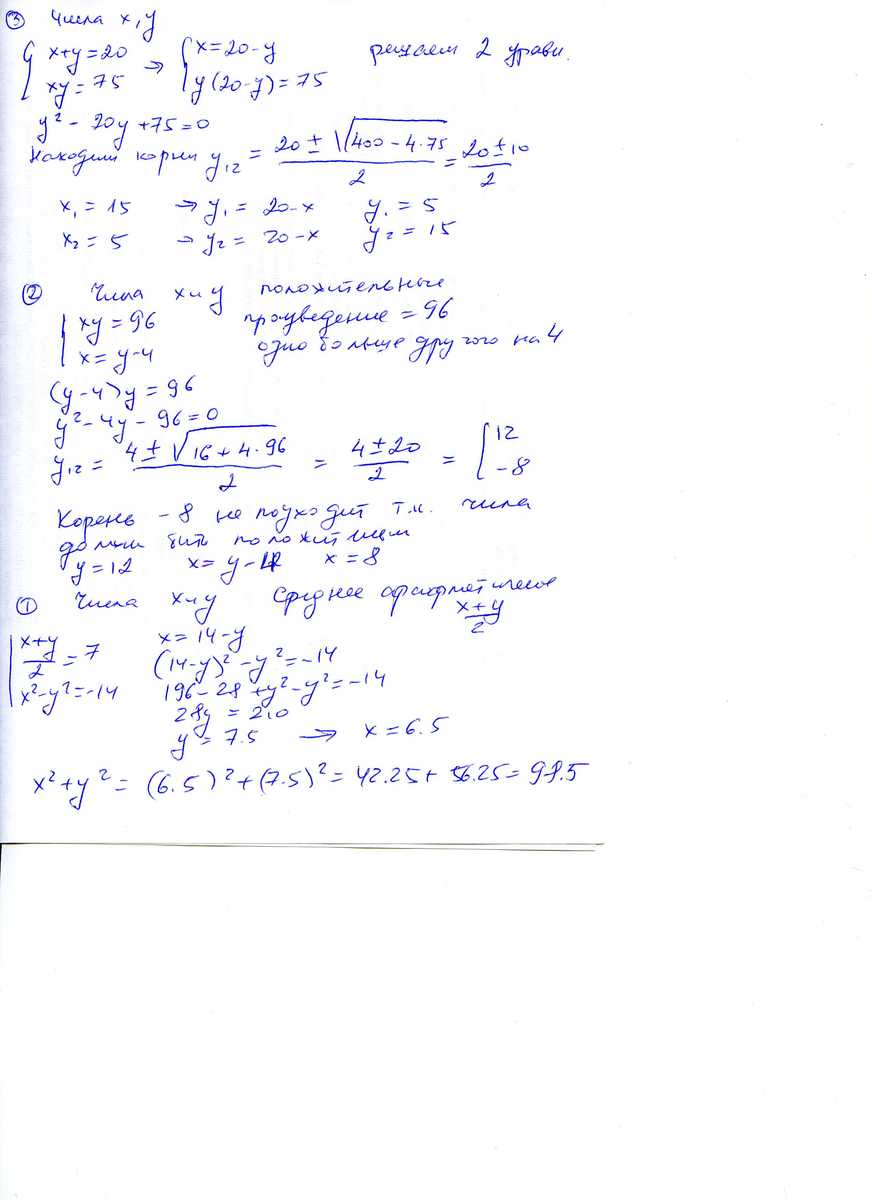 ③ Числа x, y
{ x+y=20 → { x=20-y решаем 2 уравн.
xy=75 y(20-y)=75
y² - 20y +75=0
Находим корни y₁₂ = (20 ± √(400 - 4·75))/2 = (20 ± 10)/2
x₁ = 15 → y₁ = 20-x y₁ = 5
x₂ = 5 → y₂ = 20-x y₂ = 15
② Числа x и y положительные
{ xy = 96 произведение = 96
x = y-4 одно больше другого на 4
(y-4)y = 96
y² - 4y - 96 = 0
y₁₂ = (4 ± √(16 + 4·96))/2 = (4 ± 20)/2 = [ 12
-8
Корень -8 не подходит т.к. числа
должн быть положител
y = 12 x = y-4 x = 8
① Числа x и y Среднее арифметическое (x+y)/2
{ (x+y)/2 = 7 x = 14-y
x²-y²=-14 (14-y)² - y² = -14
196 - 28 + y² - y² = -14
28y = 210
y = 7.5 → x = 6.5
x² + y² = (6.5)² + (7.5)² = 42.25 + 56.25 = 98.5